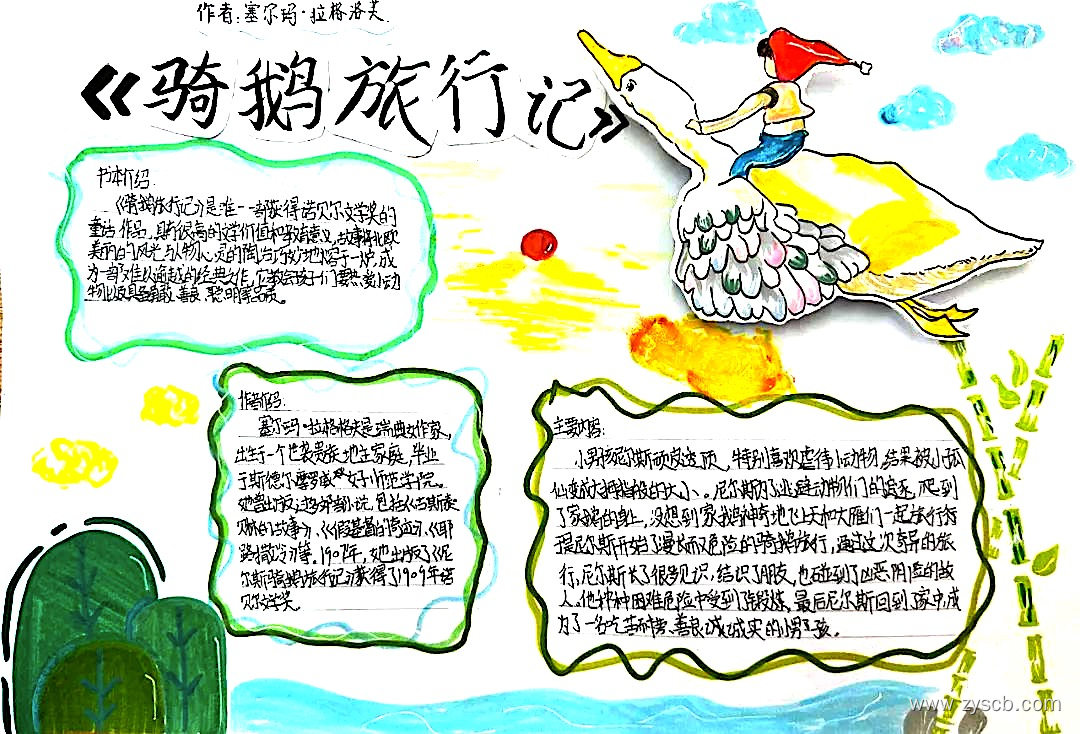 作者:塞尔玛·拉格洛夫
《骑鹅旅行记》
书本介绍:
《骑鹅旅行记》是唯一一部获得诺贝尔文学奖的
童话作品,具有很高的文学价值和教育意义,故事将北欧
美丽的风光与人物心灵的陶冶巧妙地熔于一炉,成
为一部难以逾越的经典之作,它教会孩子们要热爱小动
物以及具备勇敢、善良、聪明等品质。
作者介绍:
塞尔玛·拉格洛夫是瑞典女作家,
出生于一个世袭贵族地主家庭,毕业
于斯德尔摩罗威尔女子师范学院。
她曾出版过多部小说,包括《古斯泰
贝林的故事》、《假基督的奇迹》、《耶
路撒冷》等。1907年,她出版了《尼
尔斯骑鹅旅行记》获得了1909年诺
贝尔文学奖。
主要内容:
小男孩尼尔斯顽皮,特别喜欢虐待小动物,结果被小狐
仙变成大拇指般的大小。尼尔斯为了逃避动物们的追逐,爬到
了家鹅的身上,没想到家鹅神奇地飞上天和大雁们一起旅行,
尼尔斯开始了漫长而又危险的骑鹅旅行,通过这次奇异的旅
行,尼尔斯长了很多见识,结识了朋友,也碰到了凶恶阴险的敌
人。他在种种困难危险中受到了锻炼,最后尼尔斯回到家中,成
为了一名吃苦耐劳、善良诚实的小男孩。
www.zyscb.com